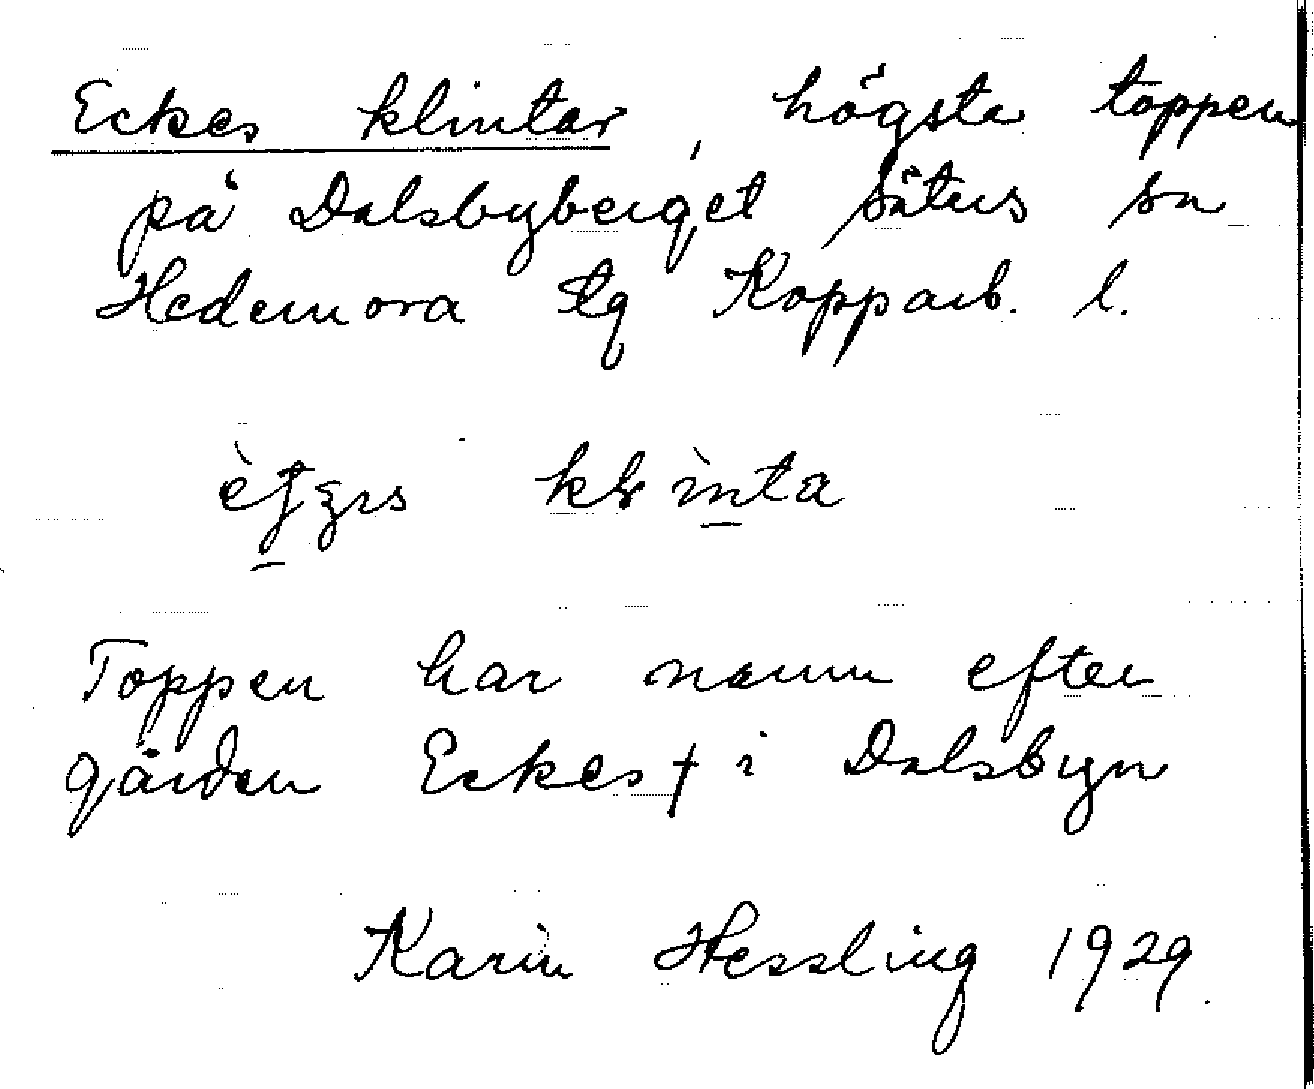 Eckes klintar, högsta toppen
på Dalsbyberget Säters sn
Hedemora tg Kopparb. l.
Toppen har namn efter
gården Eckes † i Dalsbyn
Karin Hessling 1929.